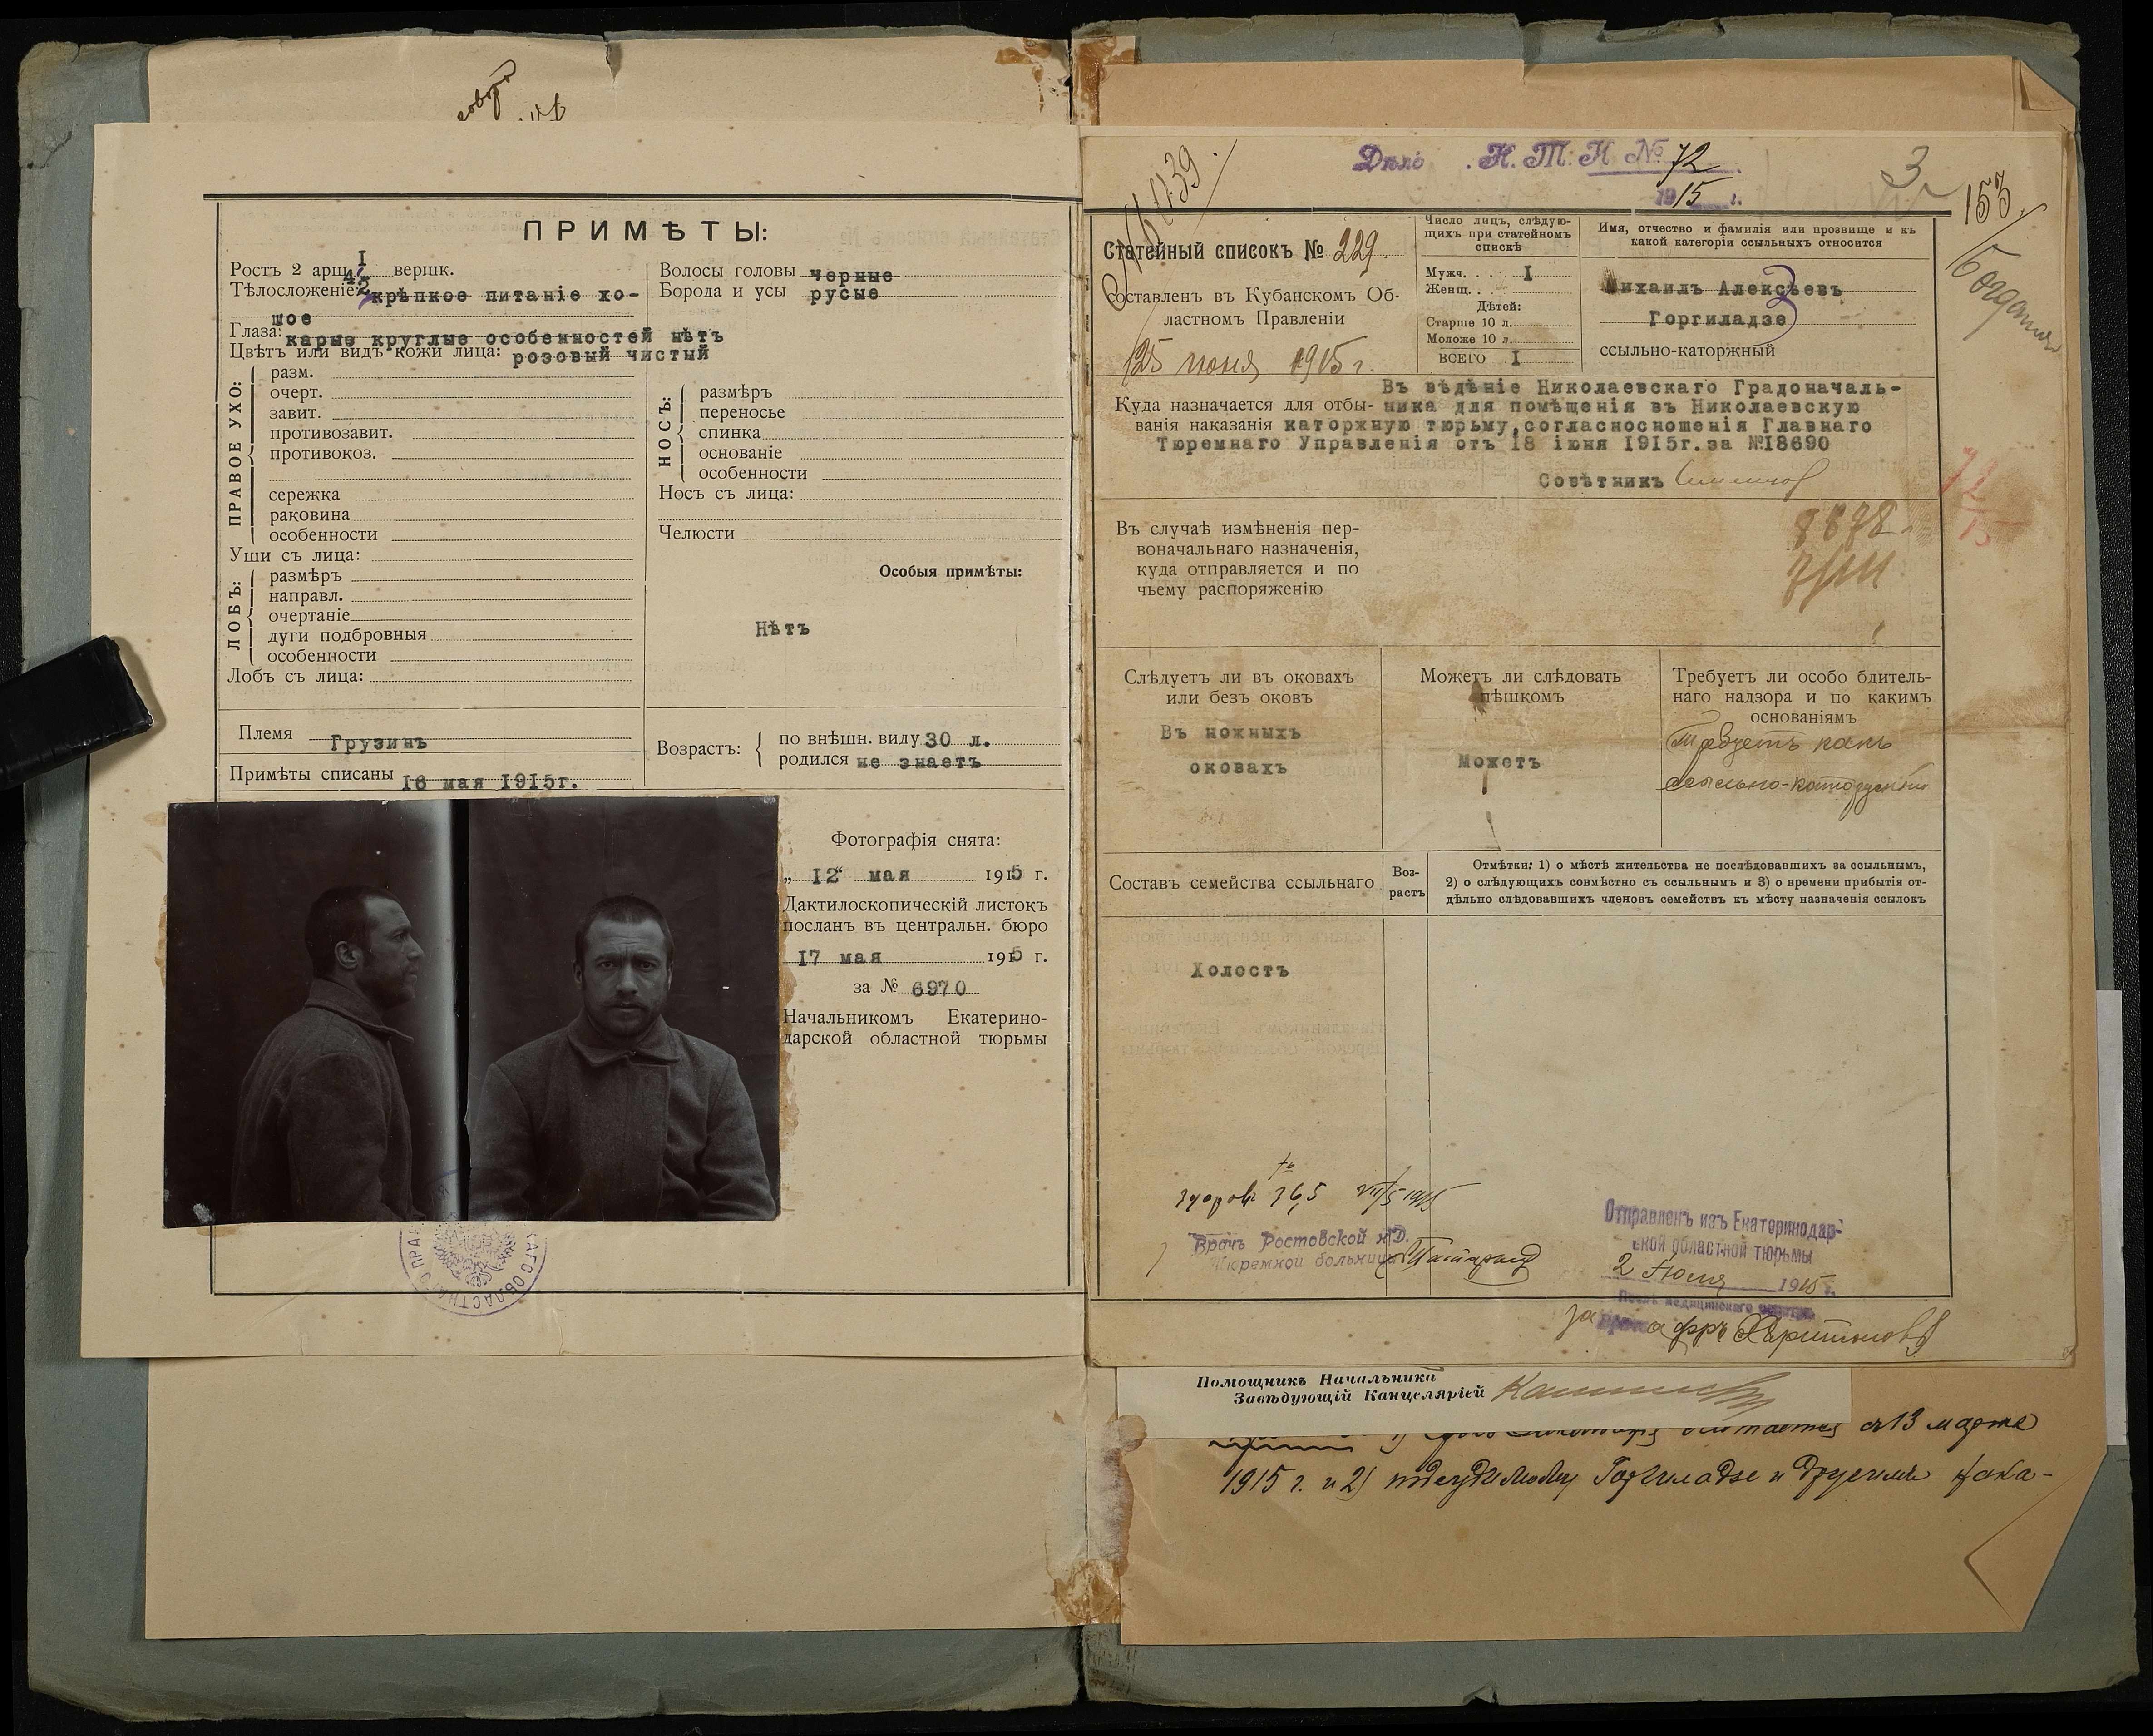 ПРИМѢТЫ:
Ростъ 2 арш. 4 1/2 вершк.
Тѣлосложеніе: крѣпкое питаніе хо-
шое
Глаза: карые круглые особенностей нѣтъ
Цвѣтъ или видъ кожи лица: розовый чистый
ПРАВОЕ УХО:
разм.
очерт.
завит.
противозавит.
противокоз.
сережка
раковина
особенности
Уши съ лица:
ЛОБЪ:
размѣръ
направл.
очертаніе
дуги подбровныя
особенности
Лобъ съ лица:
Волосы головы черные
Борода и усы русые
НОСЪ:
размѣръ
переносье
спинка
основаніе
особенности
Носъ съ лица:
Челюсти
Особыя примѣты:
Нѣтъ
Племя Грузинъ
Примѣты списаны 16 мая 1915г.
Возрастъ:
по внѣшн. виду 30 л.
родился не знаетъ
Фотографія снята:
„ 12“ мая 1915 г.
Дактилоскопическій листокъ
посланъ въ центральн. бюро
17 мая 1915 г.
за № 6970
Начальникомъ Екатерино-
дарской областной тюрьмы
Дѣло Н. Т. Н № 72
1915 г.
3
153
Статейный списокъ № 229
Составленъ въ Кубанскомъ Об-
ластномъ Правленіи
25 июня 1915 г.
Число лицъ, слѣдую-
щихъ при статейномъ
спискѣ
Мужч. . . . I
Женщ. . .
Дѣтей:
Старше 10 л.
Моложе 10 л.
ВСЕГО I
Имя, отчество и фамилія или прозвище и къ
какой категоріи ссыльныхъ относится
Михаилъ Алексѣевъ
Горгиладзе
ссыльно-каторжный
Въ вѣдѣніе Николаевскаго Градоначаль-
Куда назначается для отбы- ника для помѣщенія въ Николаевскую
ванія наказанія каторжную тюрьму, согласноошенія Главнаго
Тюремнаго Управленія отъ 18 іюня 1915г. за №18690
Совѣтникъ
Въ случаѣ измѣненія пер-
воначальнаго назначенія,
куда отправляется и по
чьему распоряженію
8698
Слѣдуетъ ли въ оковахъ
или безъ оковъ
Въ ножныхъ
оковахъ
Можетъ ли слѣдовать
пѣшкомъ
Можетъ
Требуетъ ли особо бдитель-
наго надзора и по какимъ
основаніямъ
Требуетъ какъ
ссыльно-каторжный
Составъ семейства ссыльнаго
Воз-
растъ
Отмѣтки: 1) о мѣстѣ жительства не послѣдовавшихъ за ссыльнымъ,
2) о слѣдующихъ совмѣстно съ ссыльнымъ и 3) о времени прибытія от-
дѣльно слѣдовавшихъ членовъ семействъ къ мѣсту назначенія ссылокъ
Холостъ
здоровъ 36,5 VII/5 1915
Врачъ Ростовской н/Д.
Тюремной больницы
Отправленъ изъ Екатеринодар-
ской областной тюрьмы
2 Июля 1915 г.
Послѣ медицинскаго осмотра
за
Помощникъ Начальника
Завѣдующій Канцеляріей
считается съ 13 марта
1915 г. и 2) подсудимому Горгиладзе и другимъ нака-